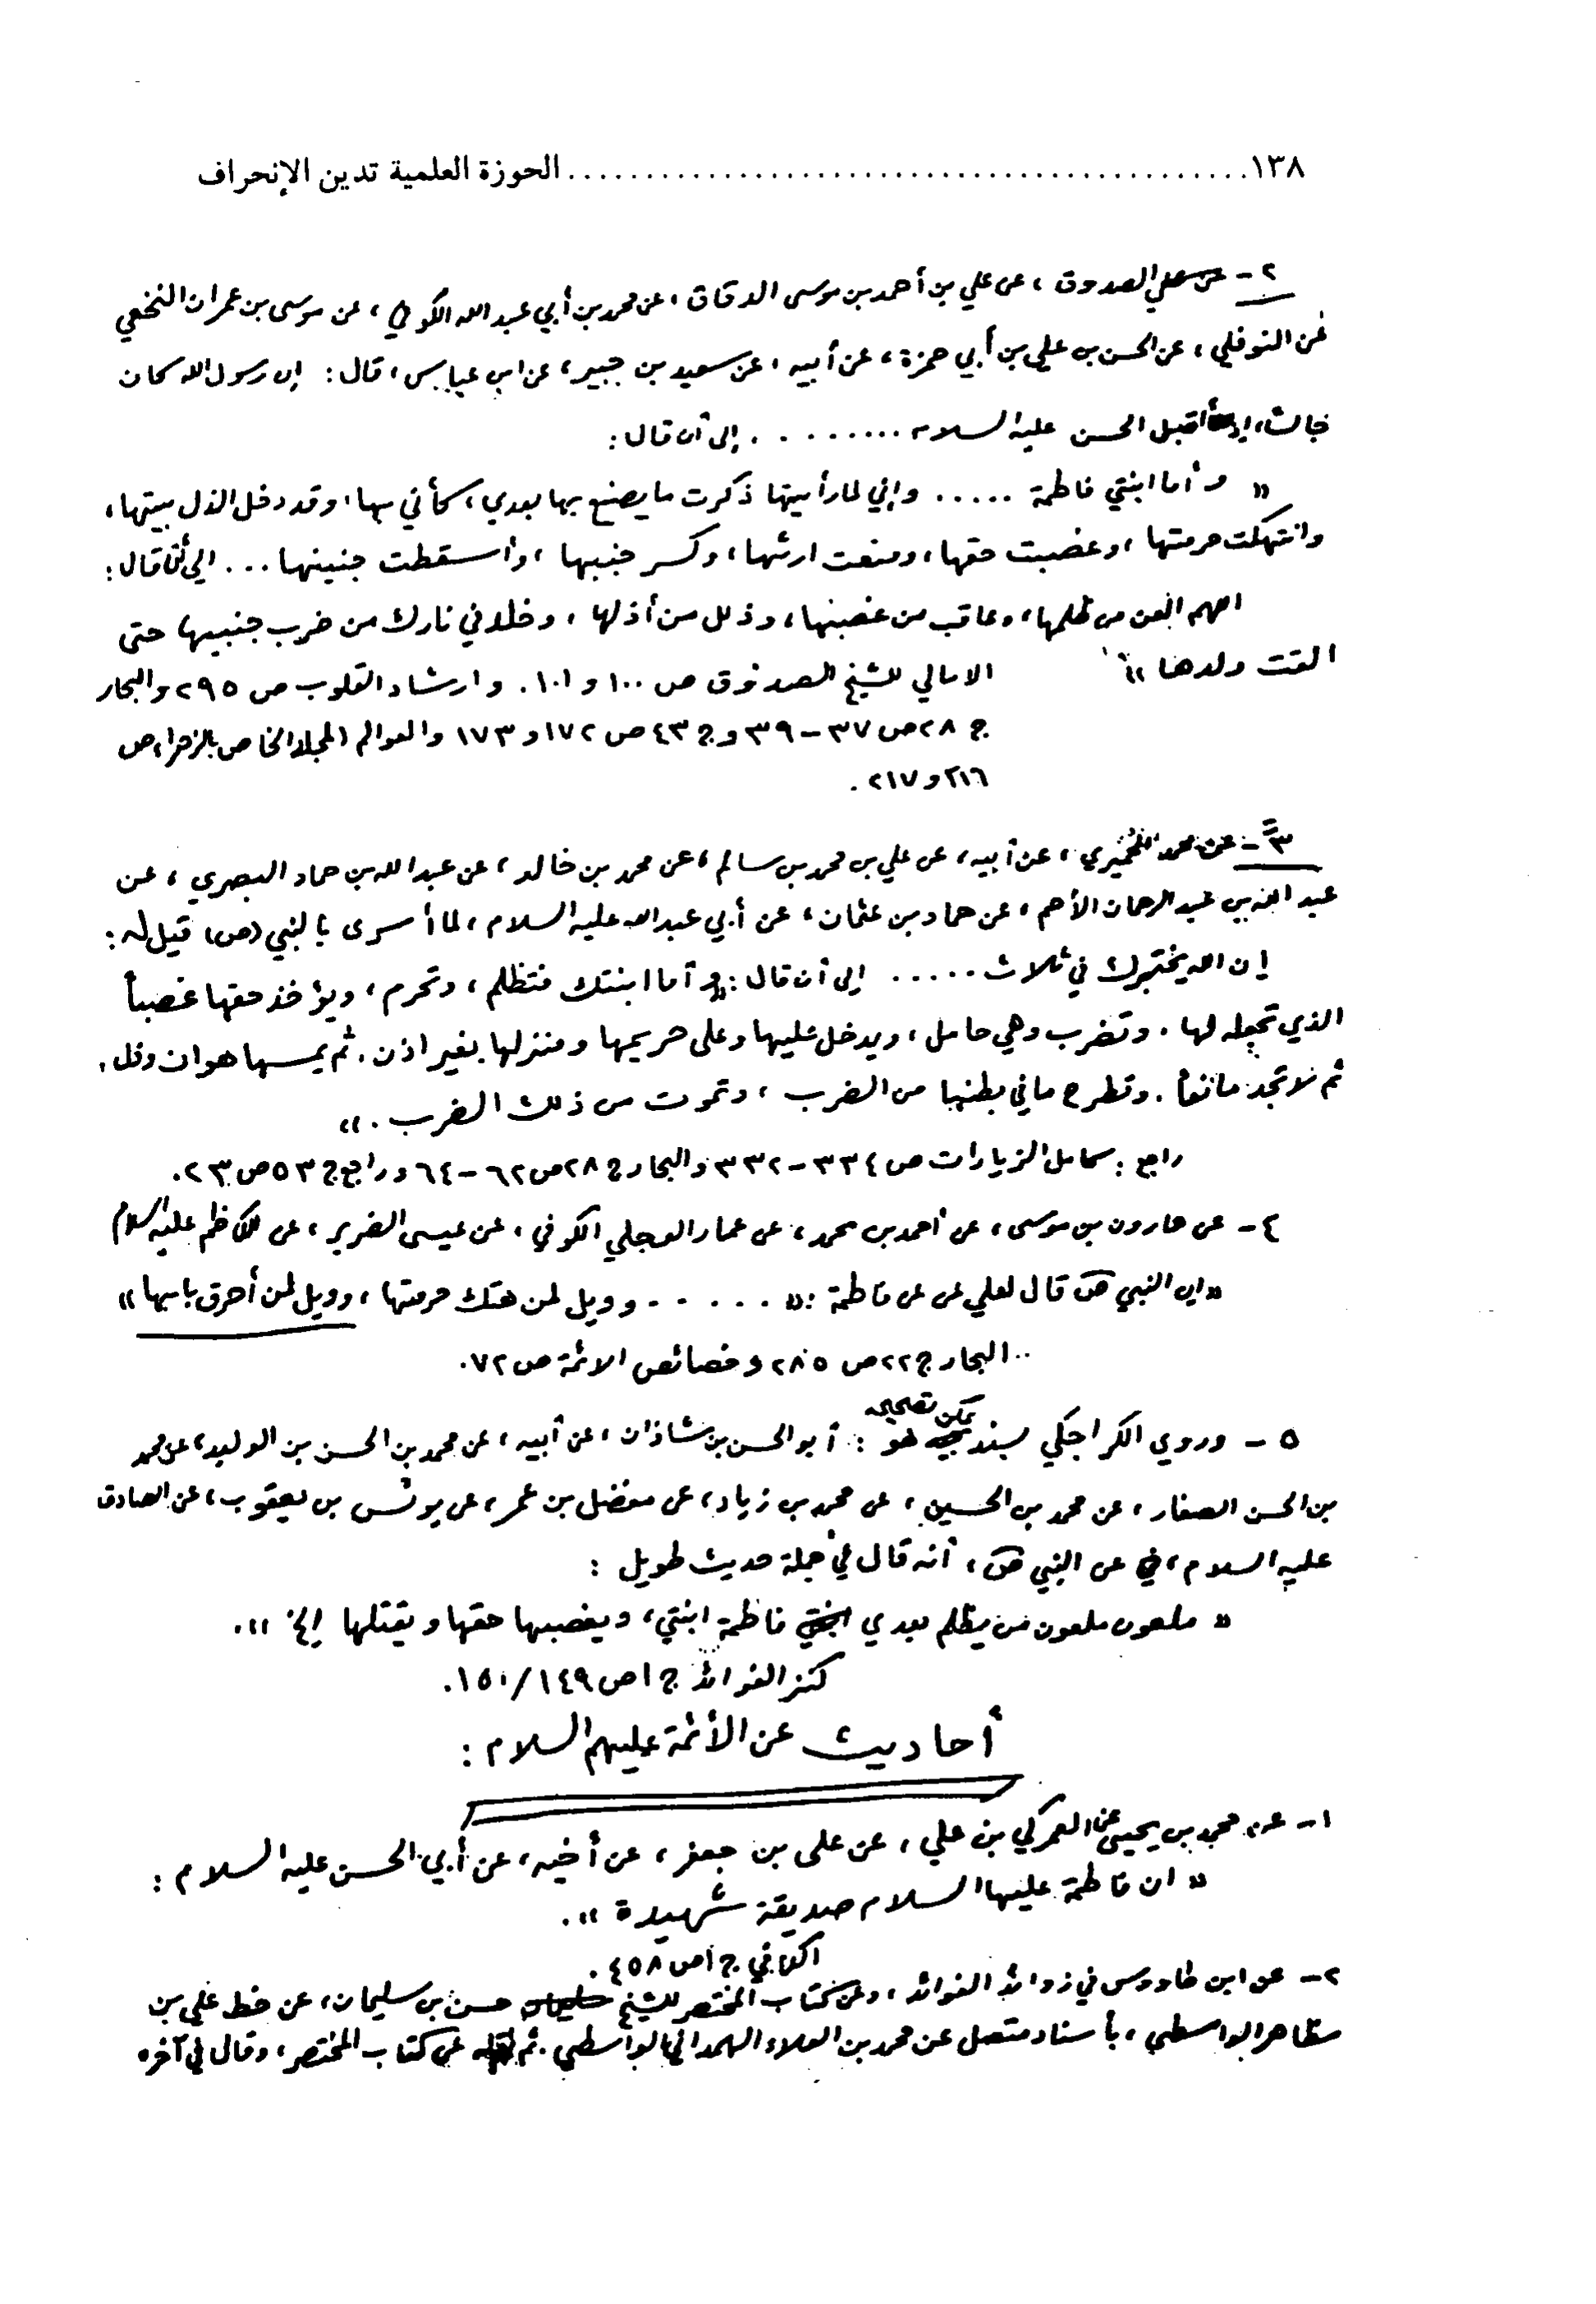 ١٣٨ ............................................ الحوزة العلمية تدين الإنحراف
٢ - الصدوق، عن علي بن أحمد بن موسى الدقاق، عن محمد بن أبي عبد الله الكوفي، عن موسى بن عمران النخعي
عن النوفلي، عن الحسن بن علي بن أبي حمزة، عن أبيه، عن سعيد بن جبير، عن ابن عباس، قال: إن رسول الله كان
جالساً، إذ أقبل الحسن عليه السلام ......... إلى أن قال:
« وأما ابنتي فاطمة ..... وإني لما رأيتها ذكرت ما يصنع بها بعدي، كأني بها، وقد دخل الذل بيتها،
وانتهكت حرمتها، وغصبت حقها، ومنعت ارثها، وكسر جنبها، وأسقطت جنينها ... إلى أن قال:
اللهم العن من ظلمها، وعاقب من غصبها، وذلل من أذلها، وخلد في نارك من ضرب جنبيها حتى
القت ولدها »
الامالي للشيخ الصدوق ص ١٠٠ و ١٠١. وارشاد القلوب ص ٢٩٥ والبحار
ج ٢٨ ص ٣٧ - ٣٩ وج ٤٣ ص ١٧٢ و ١٧٣ والعوالم (المجلد الخاص بالزهراء ص
٢١٦ و ٢١٧.
٣ - عن محمد الحميري، عن أبيه، عن علي بن محمد بن سالم، عن محمد بن خالد، عن عبد الله بن حماد البصري، عن
عبد الله بن عبد الرحمان الأصم، عن حماد بن عثمان، عن أبي عبد الله عليه السلام، لما أسرى بالنبي (ص) قيل له:
إن الله يختبرك في ثلاث ..... إلى أن قال: « وأما ابنتك فتظلم، وتحرم، ويؤخذ حقها غصباً
الذي تجعله لها. وتضرب وهي حامل، ويدخل عليها وعلى حريمها ومنزلها بغير اذن. ثم يمسها هوان وذل.
ثم لا تجد مانعاً. وتطرح ما في بطنها من الضرب، وتموت من ذلك الضرب. »
راجع: كامل الزيارات ص ٣٣٤ - ٣٣٢ والبحار ج ٢٨ ص ٦٢ - ٦٤ وراجع ج ٥٣ ص ٢٣.
٤ - عن هارون بن موسى، عن أحمد بن محمد، عن عمار العجلي الكوفي، عن عيسى الضرير، عن الكاظم عليه السلام
« إن النبي ص قال لعلي عن فاطمة: « ..... وويل لمن هتك حرمتها، وويل لمن أحرق بابها »
.. البحار ج ٢٢ ص ٢٨٥ وخصائص الائمة ص ٧٢.
٥ - وروى الكراجكي بسند يمكن تصحيحه هو: أبو الحسن بن شاذان، عن أبيه، عن محمد بن الحسن بن الوليد، عن محمد
بن الحسن الصفار، عن محمد بن الحسين، عن محمد بن زياد، عن مفضل بن عمر، عن يونس بن يعقوب، عن الصادق
عليه السلام، عن النبي ص، أنه قال في جملة حديث طويل:
« ملعون ملعون من يظلم بعدي فاطمة ابنتي، ويغصبها حقها ويقتلها إلخ ».
كنز الفوائد ج ١ ص ١٤٩ / ١٥٠.
أحاديث عن الأئمة عليهم السلام:
١ - عن محمد بن يحيى عن العمركي بن علي، عن علي بن جعفر، عن أخيه، عن أبي الحسن عليه السلام:
« ان فاطمة عليها السلام صديقة شهيدة ».
الكافي ج ١ ص ٤٥٨.
٢ - عن ابن طاووس في زوائد الفوائد، وعن كتاب المختصر للشيخ حسن بن سليمان، عن خط علي بن
مظاهر الواسطي، بأسناد متصل عن محمد بن العلاء الهمداني الواسطي. ثم نقله عن كتاب المختصر، وقال في آخره